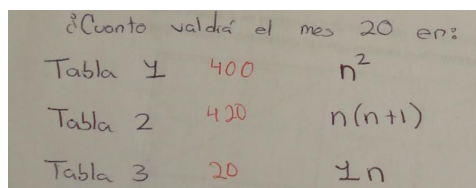 ¿Cuanto valdrá el mes 20 en:
Tabla 1 400 n²
Tabla 2 420 n(n+1)
Tabla 3 20 1n